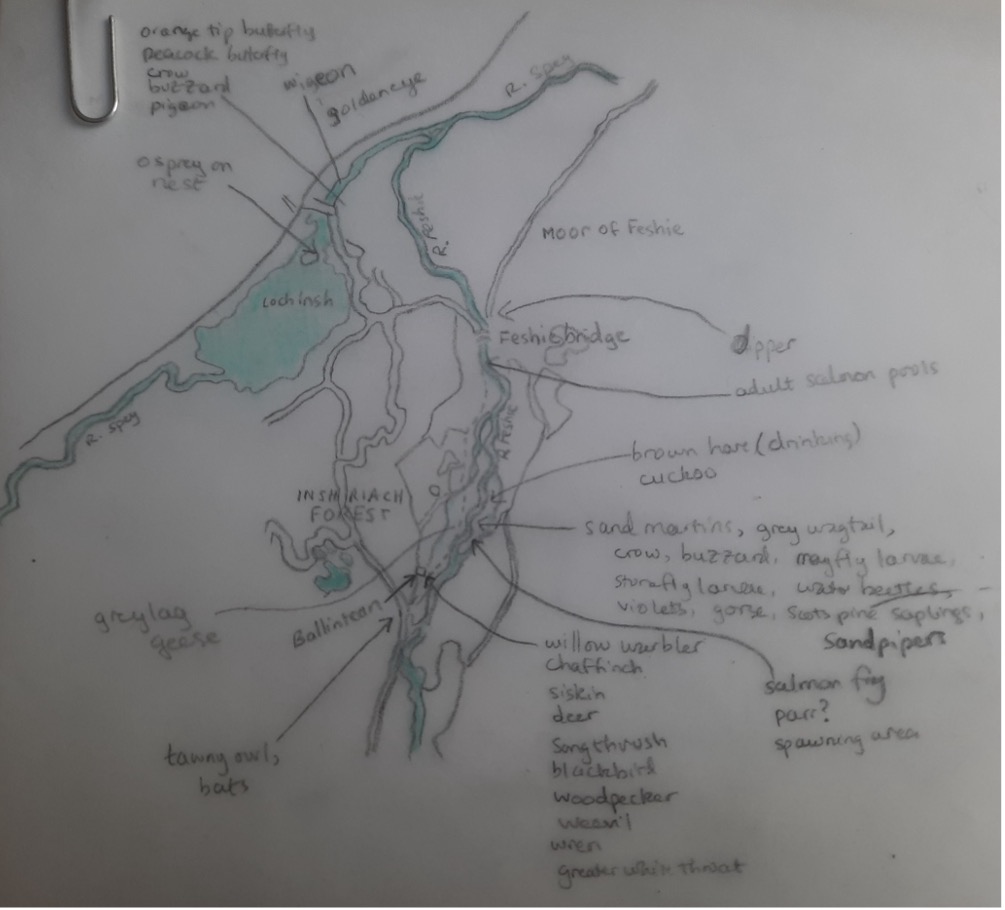 orange tip butterfly
peacock butterfly
crow
buzzard
pigeon
wigeon
goldeneye
R. Spey
osprey on
nest
R. Feshie
Moor of Feshie
Loch Insh
Feshiebridge
dipper
adult salmon pools
R. Spey
R Feshie
brown hare (drinking)
cuckoo
INSHRIACH
FOREST
sand martins, grey wagtail,
crow, buzzard, mayfly larvae,
stonefly larvae, water beetles,
violets, gorse, Scots pine saplings,
Sandpipers
greylag
geese
Ballintean
willow warbler
chaffinch
siskin
deer
Songthrush
blackbird
woodpecker
weevil
wren
greater white throat
salmon fry
parr?
spawning area
tawny owl,
bats